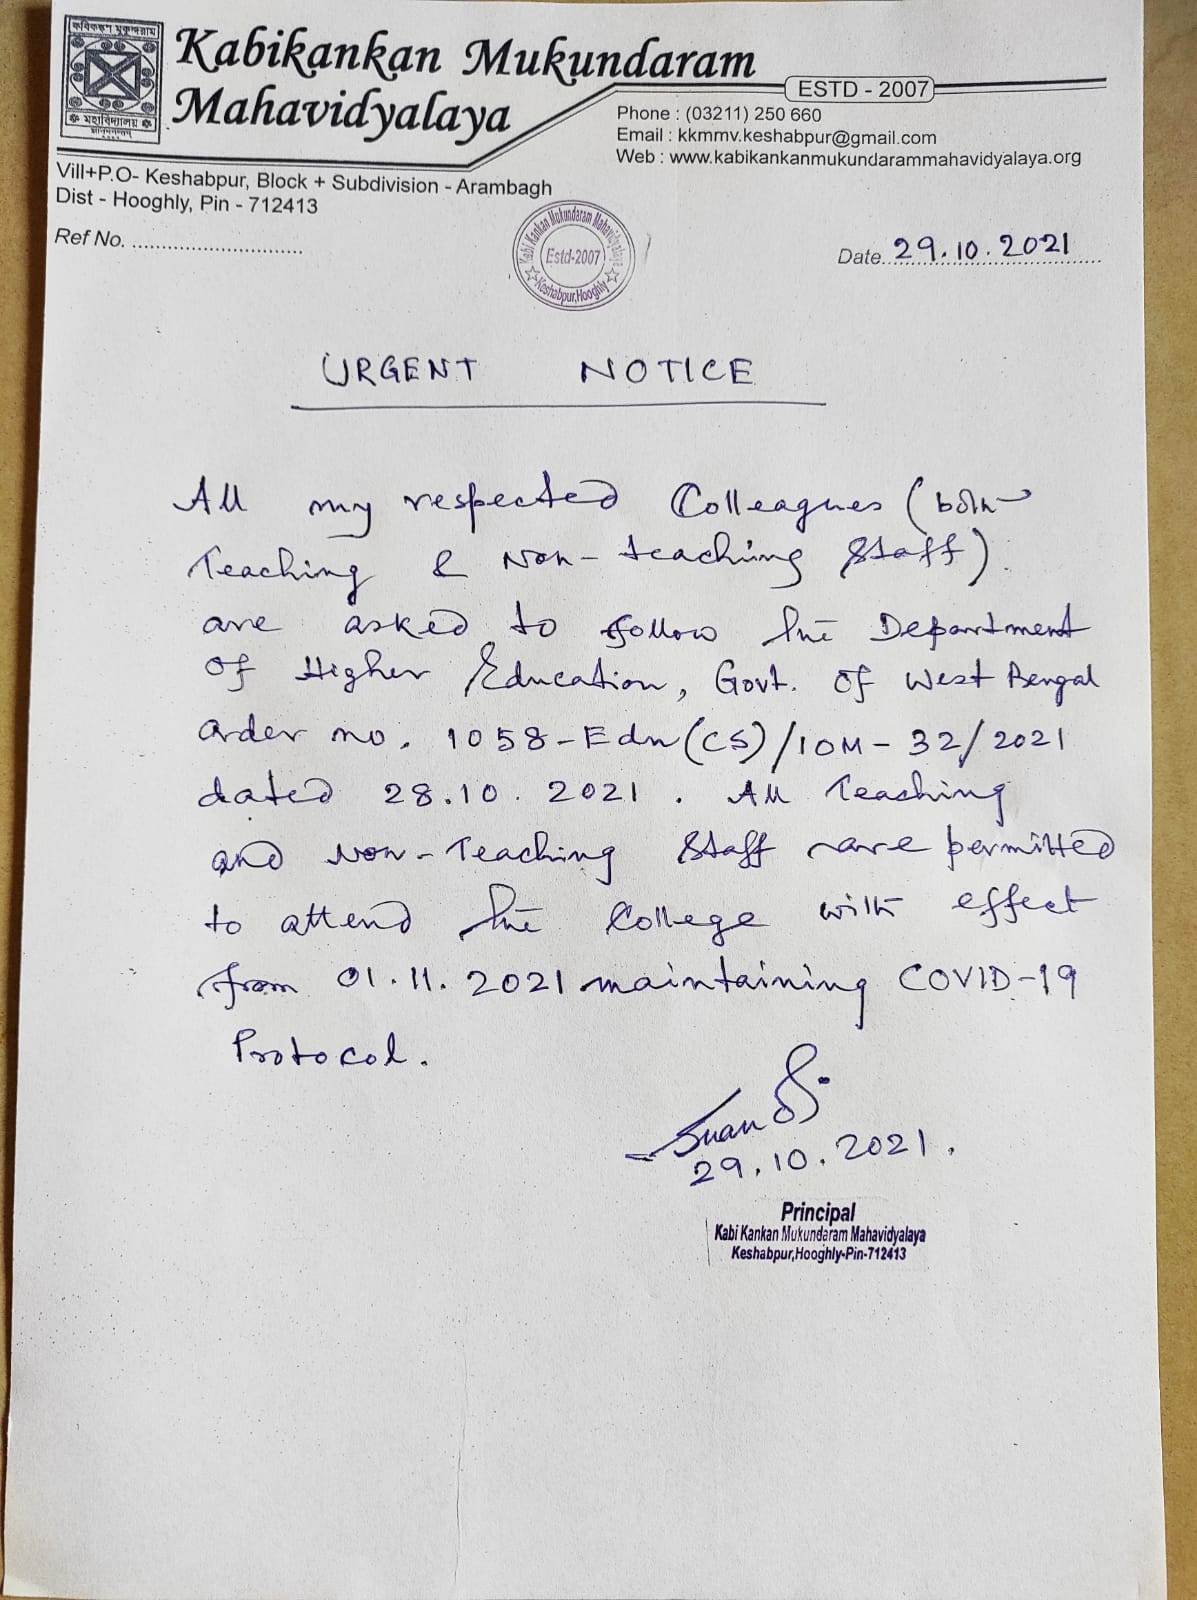 কবিকঙ্কণ মুকুন্দরাম
মহাবিদ্যালয়
Kabikankan Mukundaram
Mahavidyalaya
ESTD - 2007
Phone : (03211) 250 660
Email : kkmmv.keshabpur@gmail.com
Web : www.kabikankanmukundarammahavidyalaya.org
Vill+P.O- Keshabpur, Block + Subdivision - Arambagh
Dist - Hooghly, Pin - 712413
Ref No. ............................
Kabi Kankan Mukundaram Mahavidyalaya
Estd-2007
Keshabpur,Hooghly
Date. 29.10.2021
URGENT NOTICE
All my respected Colleagues (both
Teaching & Non-teaching Staff)
are asked to follow the Department
of Higher Education, Govt. of West Bengal
order no. 1058-Edn(CS)/10M-32/2021
dated 28.10.2021. All Teaching
and Non-Teaching Staff are permitted
to attend the College with effect
from 01.11.2021 maintaining COVID-19
Protocol.
29.10.2021.
Principal
Kabi Kankan Mukundaram Mahavidyalaya
Keshabpur,Hooghly-Pin-712413